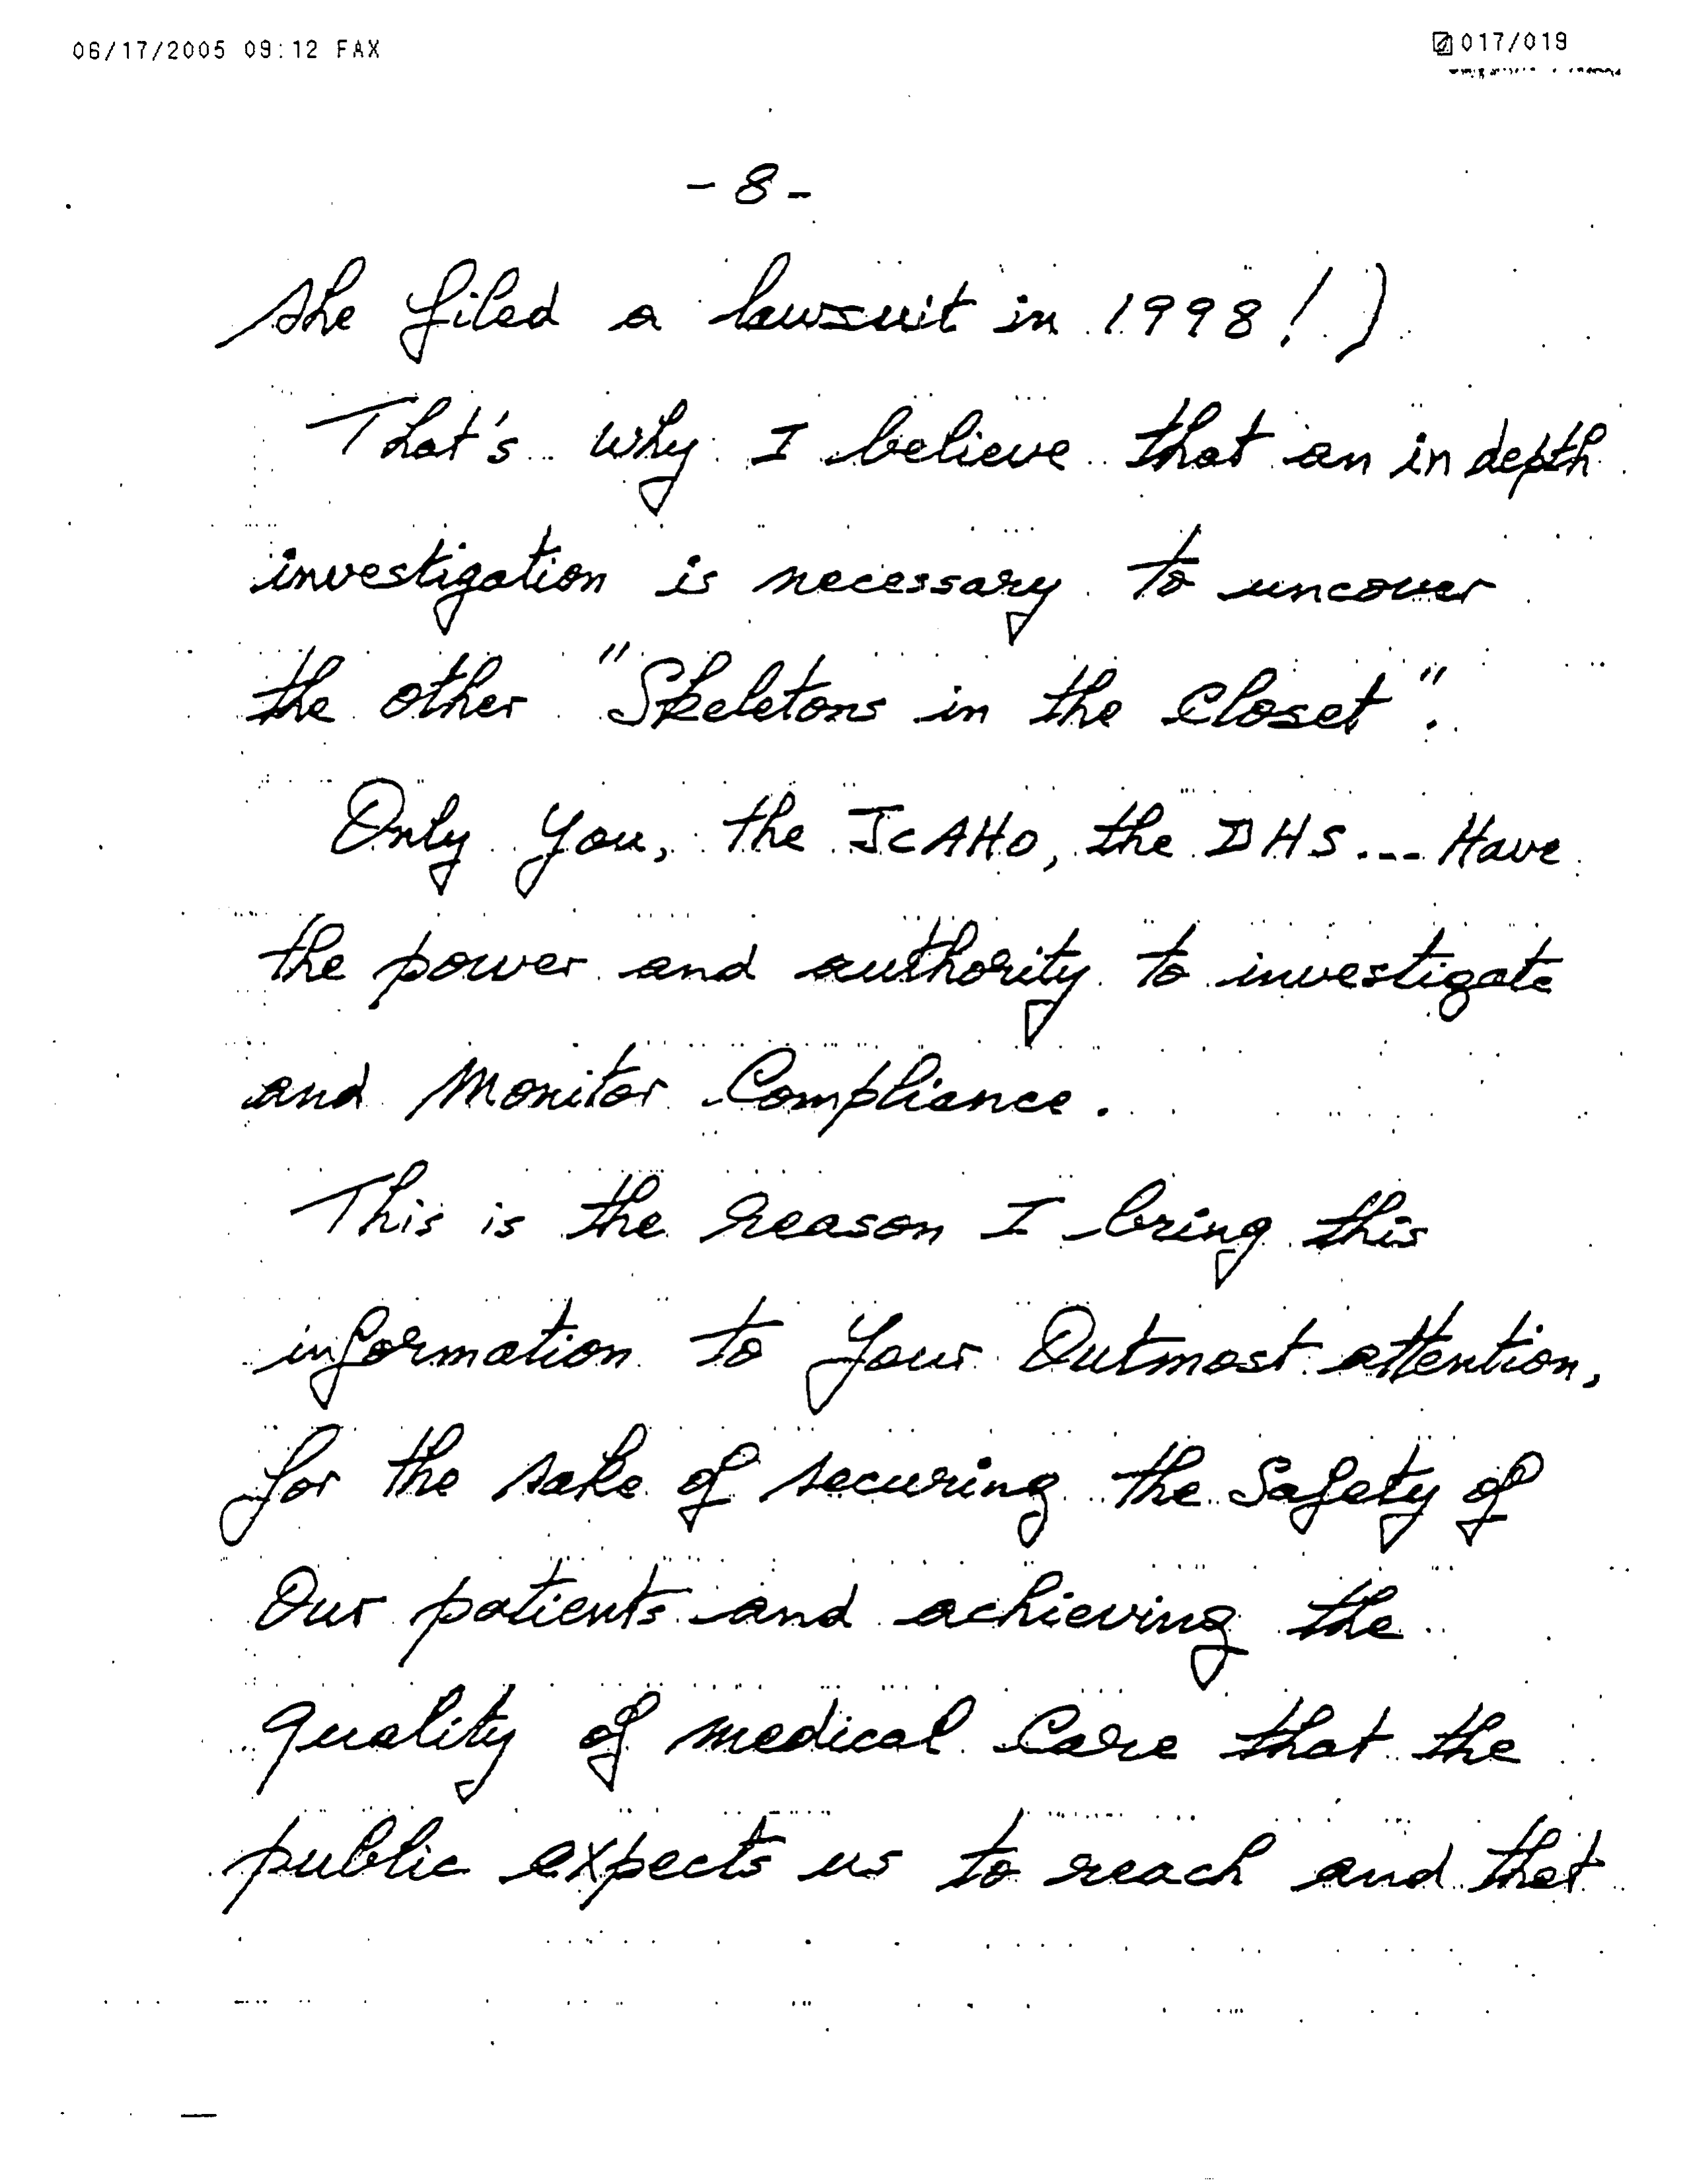 06/17/2005 09:12 FAX
017/019
- 8 -
she filed a lawsuit in 1998!)
That's why I believe that an in depth
investigation is necessary to uncover
the other "Skeletons in the Closet".
Only you, the JCAHO, the DHS... Have
the power and authority to investigate
and Monitor Compliance.
This is the reason I bring this
information to your Outmost attention,
for the sake of securing the Safety of
Our patients and achieving the
quality of medical Care that the
public expects us to reach and that